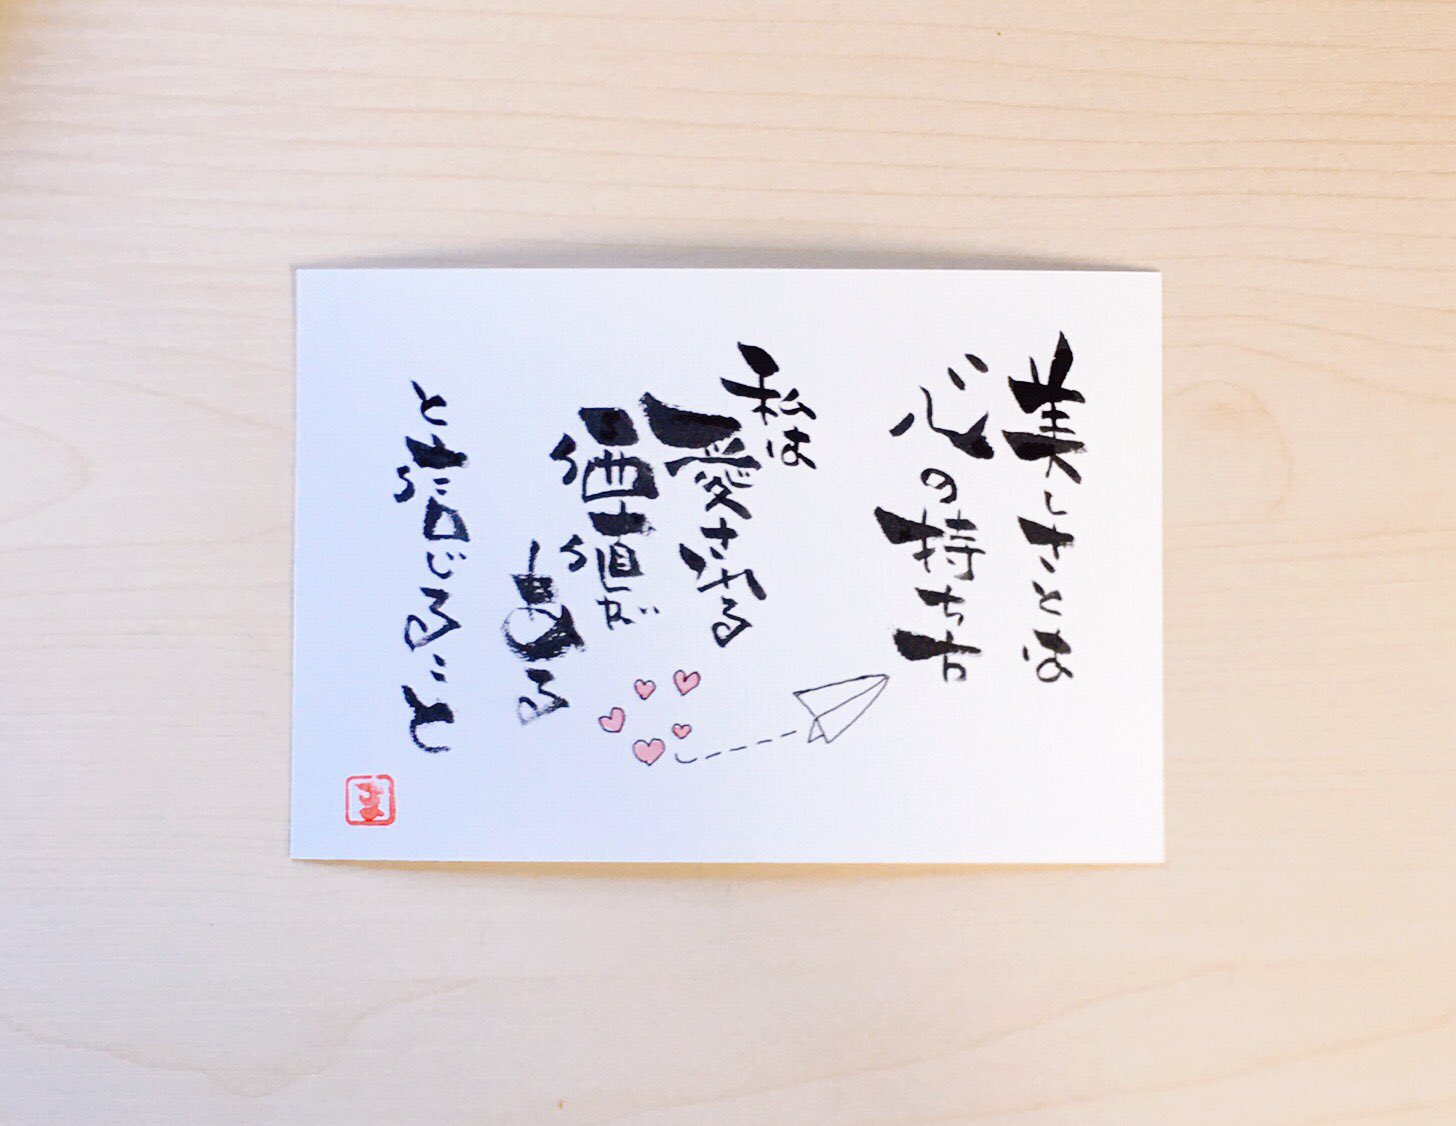 美しさとは
心の持ち方
私は
愛される
価値が
ある
と信じること
ま